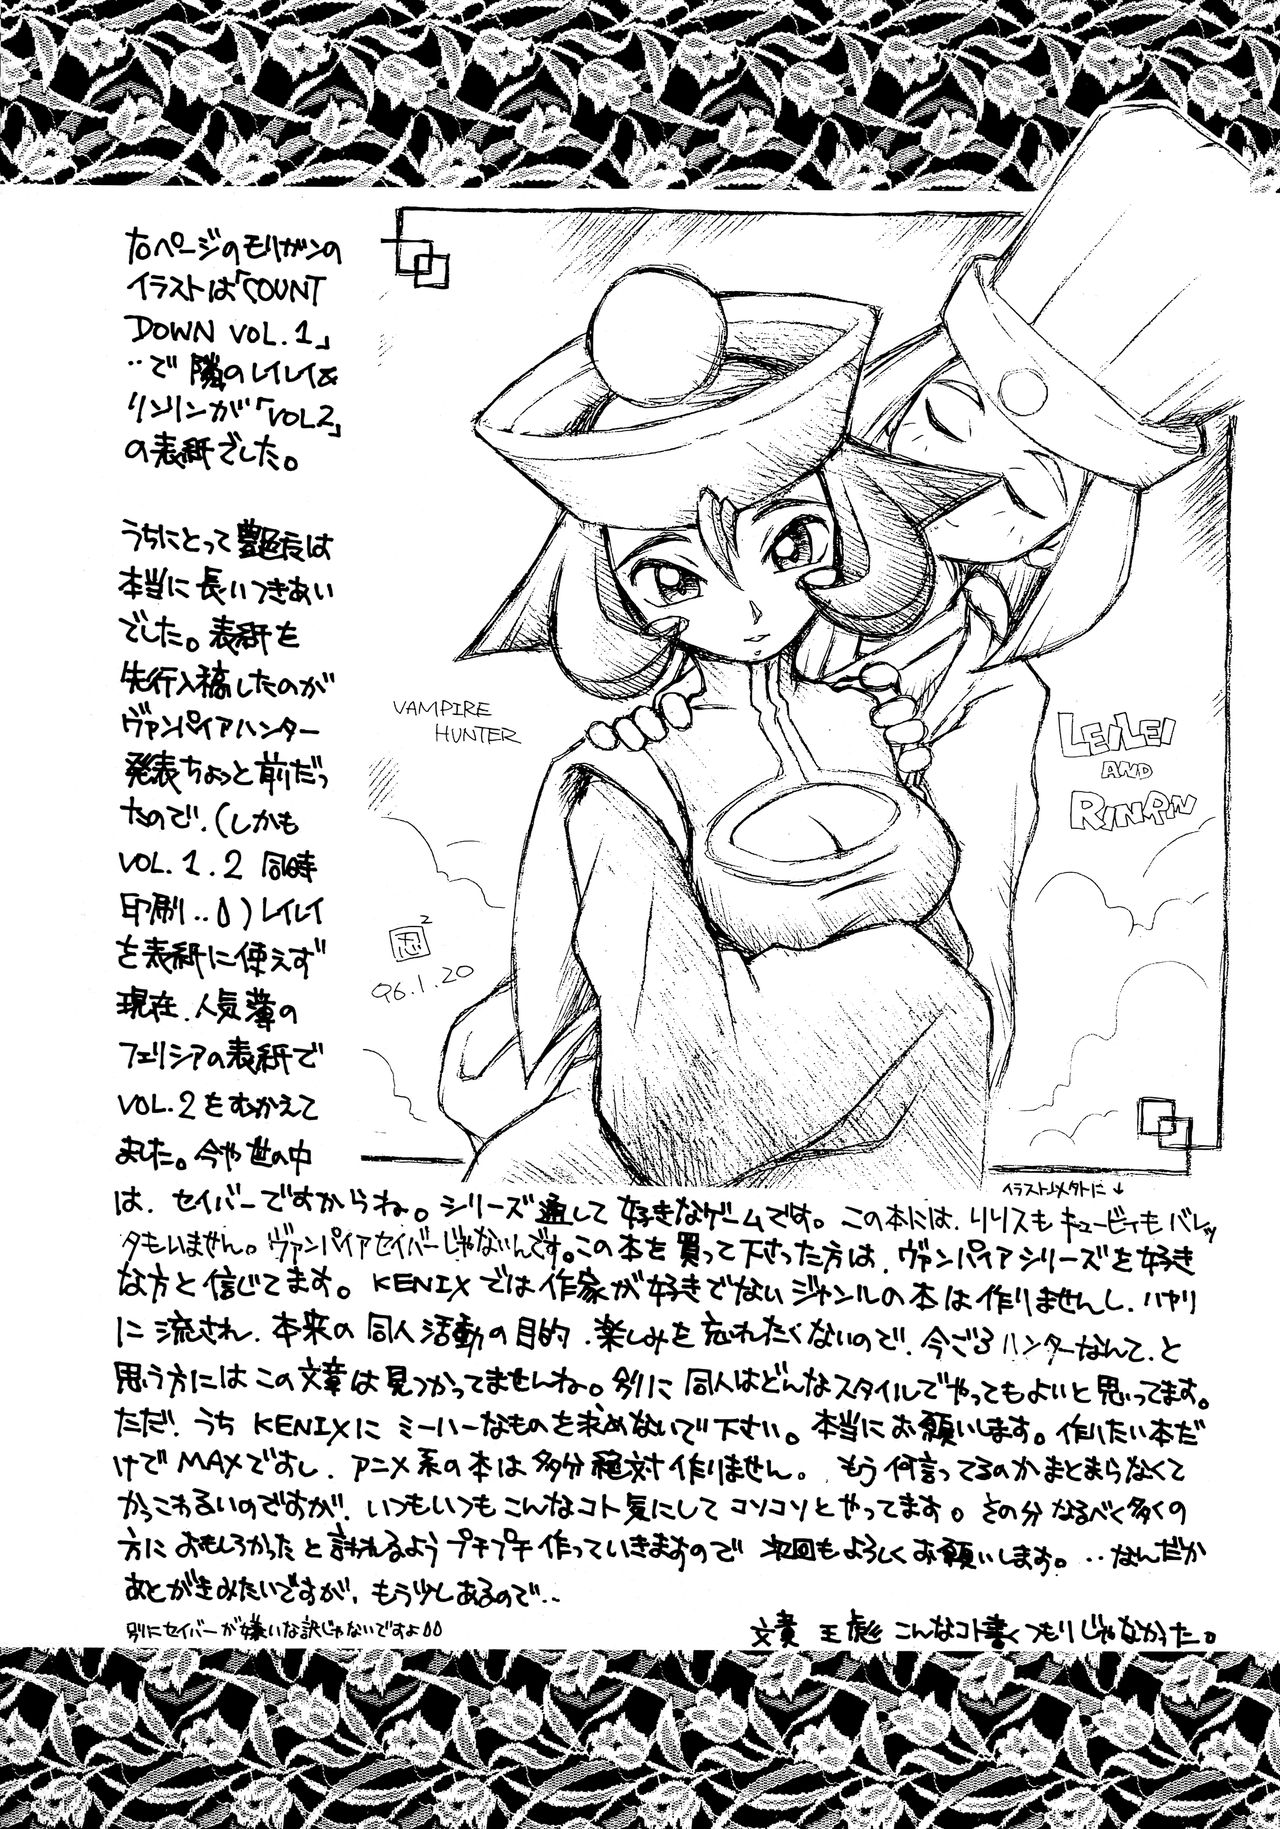 右ページのモリガンの
イラストは「COUNT
DOWN VOL.1」
‥で隣のレイレイ&
リンリンが「VOL2」
の表紙でした。
うちにとって艶長は
本当に長いつきあい
でした。表紙を
先行入稿したのが
ヴァンパイアハンター
発表ちょっと前だっ
たので、(しかも
VOL.1.2 同時
印刷‥)レイレイ
を表紙に使えず
現在、人気薄の
フェリシアの表紙で
VOL.2をむかえて
ました。今や世の中
VAMPIRE
HUNTER
LEILEI
AND
RINRIN
忍2
96.1.20
イラストJメタトに↓
は、セイバーですからね。シリーズ通して好きなゲームです。この本には、リリスもキュービィもバレッ
タもいません。ヴァンパイアセイバーじゃないんです。この本を買って下さった方は、ヴァンパイアシリーズを好き
な方と信じてます。KENIXでは作家が好きでないジャンルの本は作りませんし、ハヤリ
に流され、本来の同人活動の目的、楽しみを忘れたくないので、今ごろハンターなんて、と
思う方にはこの文章は見つかってませんね。別に同人はどんなスタイルでやってもよいと思ってます。
ただ、うちKENIXにミーハーなものを求めないで下さい。本当にお願いします。作りたい本だ
けでMAXですし、アニメ系の本は多分絶対作りません。もう何言ってるのかまとまらなくて
かっこわるいのですが、いつもいつもこんなコト気にしてコソコソとやってます。その分なるべく多くの
方におもしろかったと言われるようプチプチ作っていきますので次回もよろしくお願いします。‥なんだか
あとがきみたいですが、もう少しあるので‥
別にセイバーが嫌いな訳じゃないですよ
文責 王彪 こんなコト書くつもりじゃなかった。